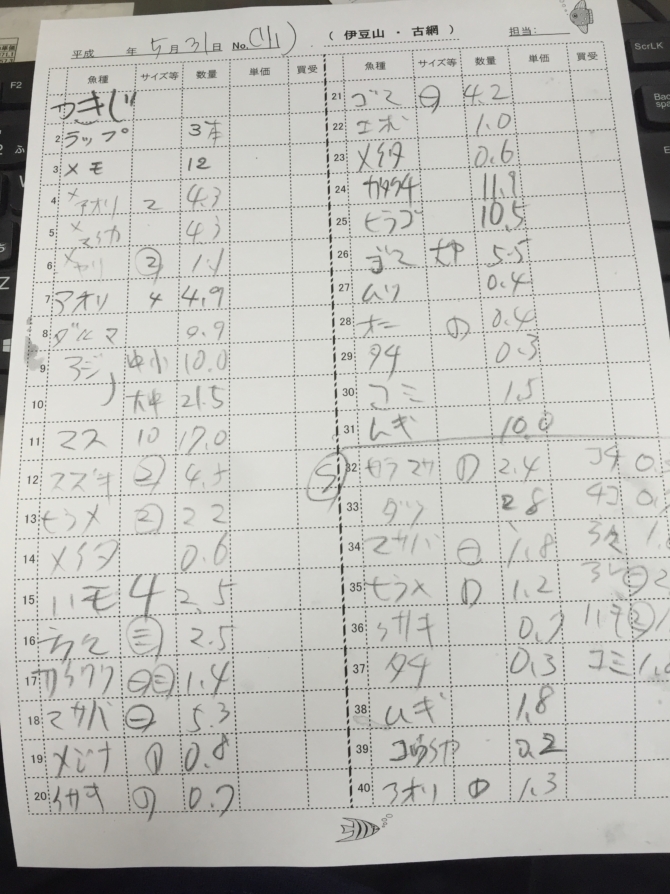 (伊豆山・古網)
平成 年 5月31日 No. 担当:
魚種 サイズ等 数量 単価 買受
2 ラップ 3本
3 メモ 12
4 メアオリ 2 4.3
5 4.3
6 ② 1.1
7 アオリ 4 4.9
8 ダルマ 0.9
9 アジ 中小 10.0
10 大中 21.5
11 マス 10 17.0
12 スズキ ② 4.5
13 ヒラメ ② 2.2
14 メイタ 0.6
15 ハモ 4 2.5
16 ㊂ 2.5
17 ㊀㊂ 1.4
18 マサバ ㊀ 5.3
19 メジナ ① 0.8
20 イサキ 0.7
魚種 サイズ等 数量 単価 買受
21 ゴマ ㊀ 4.2
22 エボ 1.0
23 メイタ 0.6
24 11.9
25 ヒラゴ 10.5
26 ゴマ 大中 5.5
27 ムツ 0.4
28 0.4
29 タチ 0.3
30 コミ 1.5
31 ムギ 10.0
32 ① 2.4 0.
33 ダツ 2.8 タコ 0.
34 マサバ ㊀ 1.8 1.
35 ヒラメ ① 1.2 ㊀2
36 イサキ 0.7 ②
37 タチ 0.3 コミ 1.
38 ムギ 1.8
39 0.2
40 アオリ ① 1.3